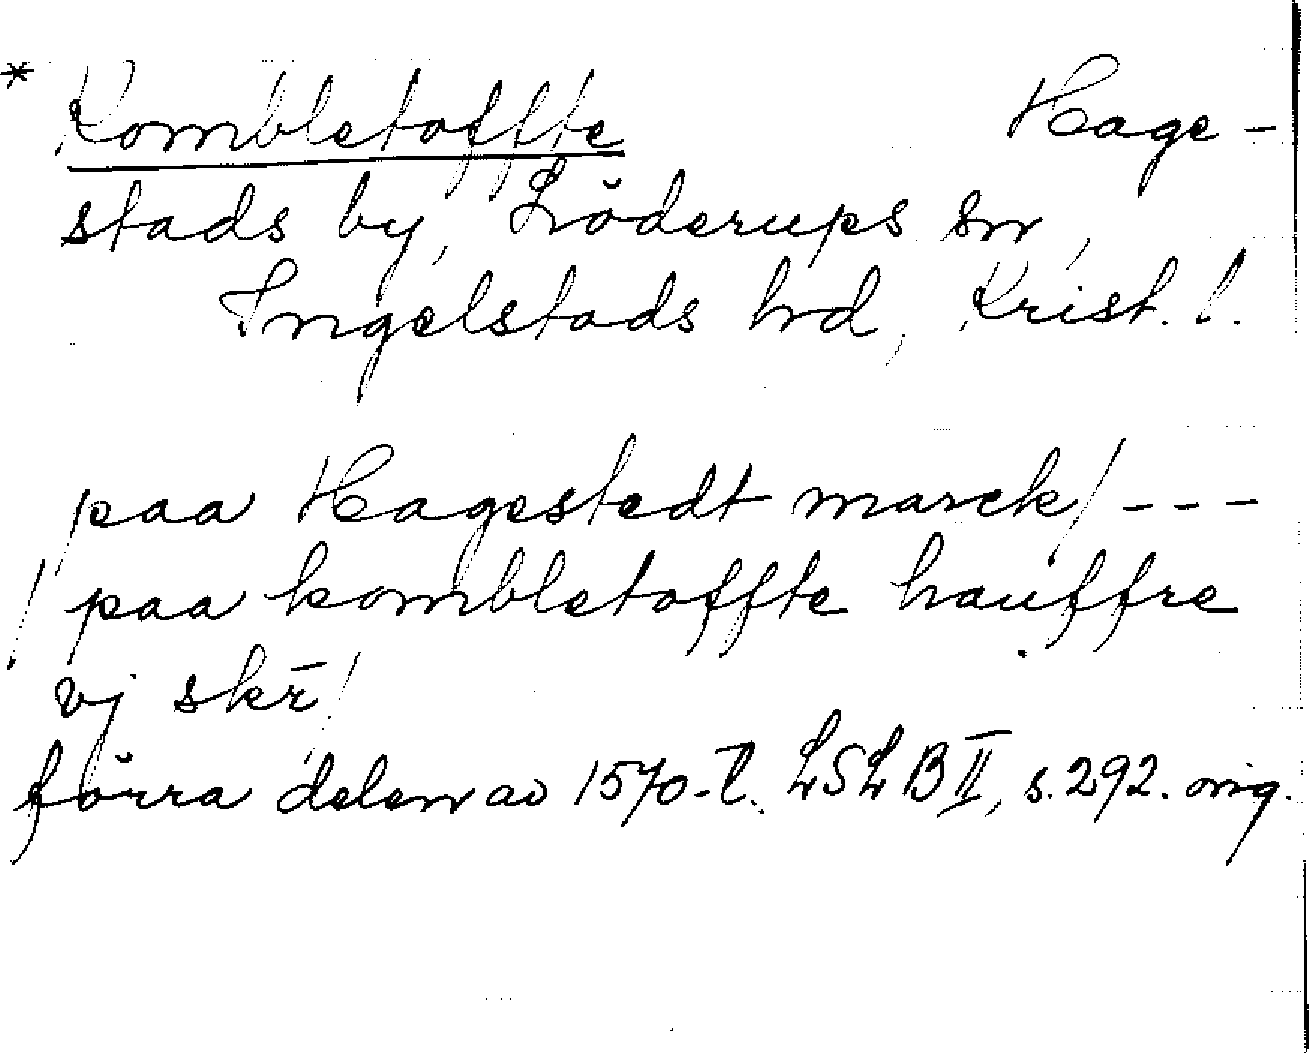 * Kombletoffte Hage-
stads by, Löderups sn,
Ingelstads hd, Krist. l.
/paa Hagestedt marck/ ---
/ paa kombletoffte hauffre
vj skr̄/
förra delen av 1570-t. LSLB II, s. 292. orig.